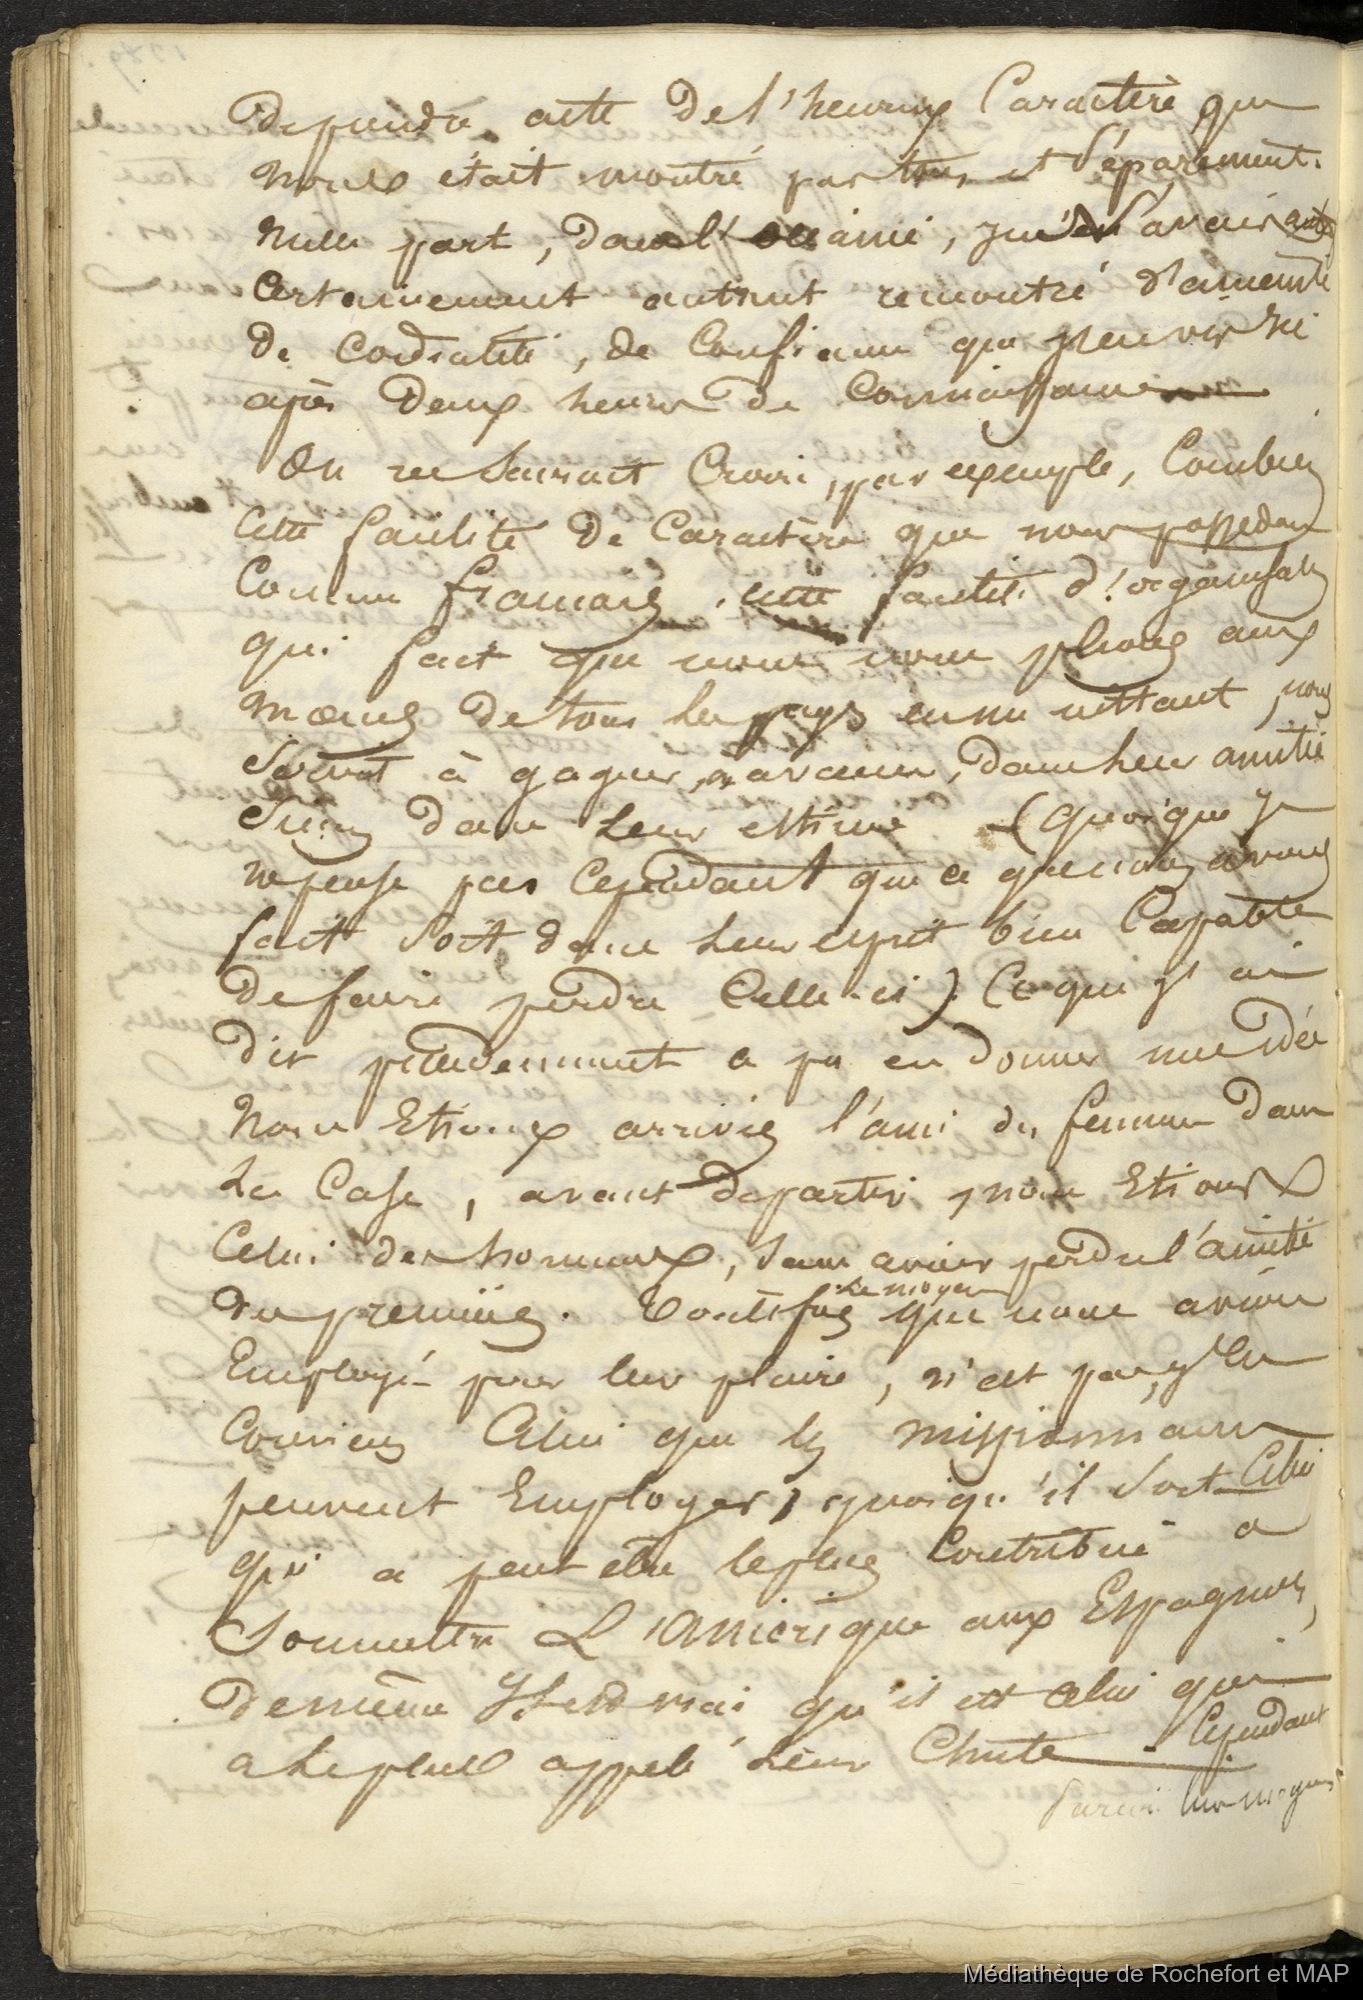 dependu cette de l'heureux Caractère que
nous était montré par tous et Séparement.
nulle part, dans l'océanie, je n'avais
Certainement autant rencontré d'aménité
de Cordialité, de Confiance que
après Deux heures de Connaissance
On ne Saurait Croire, par exemple, Combien
Cette facilité de Caractère que nous possedons
Comme français, cette facilité d'organisation
qui fait que nous nous plions aux
Moeurs de tous les pays en un instant, nous
Servait à gagner, à avancer, dans leur amitié
Sinon dans leur estime (quoique je
ne pense pas Cependant que ce que nous avons
fait Soit dans leur esprit bien Capable
de faire perdre Celle-ci). Ce que j'ai
dit précédemment a pu en donner une idée
Nous Etions arrivés l'ami des femmes dans
La Case, avant de partir, nous Etions
Celui des hommes, Sans avoir perdu l'amitié
des premières. Toutefois le moyen que nous avions
Employé pour leur plaire, n'est pas, j'en
Conviens Celui que les missionnaires
peuvent Employer, quoiqu'il Soit Celui
qui a peut être le plus Contribué a
Soumettre L'Amérique aux Espagnols,
de même qu'il est celui qui
a Le plus appelé Leur Chute. Cependant
parmi les moyens
Médiathèque de Rochefort et MAP